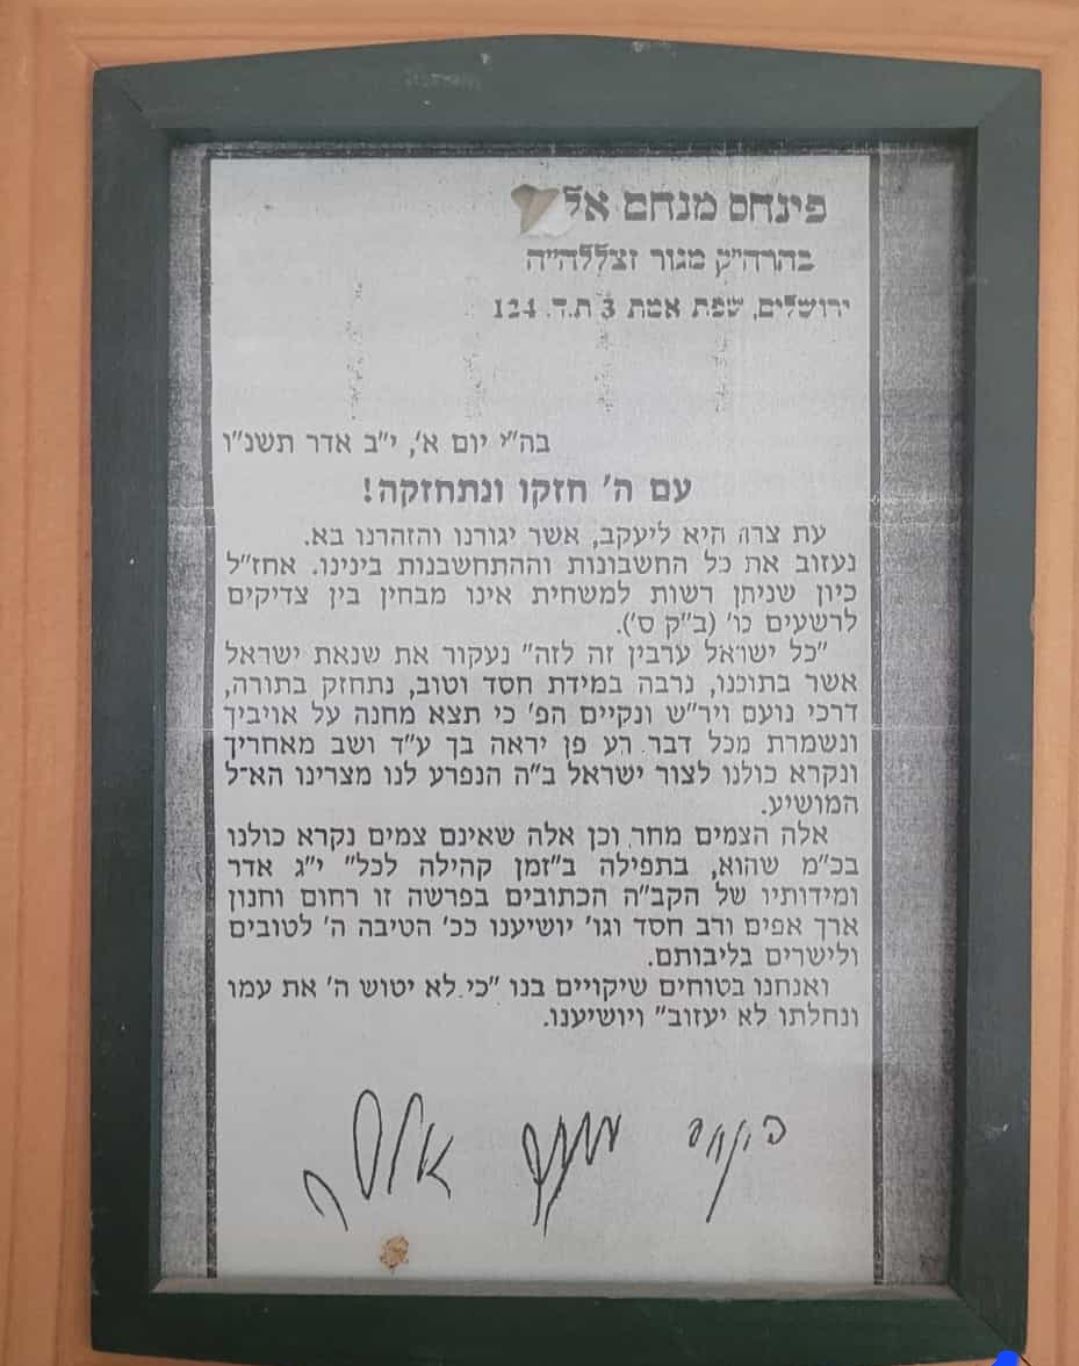 פינחס מנחם אל
בהרה"ק מגור זצללה"ה
ירושלים, שפת אמת 3 ת.ד. 124
בה"י יום א', י"ב אדר תשנ"ו
עם ה' חזקו ונתחזקה!
עת צרה היא ליעקב, אשר יגורנו והזהרנו בא.
נעזוב את כל החשבונות וההתחשבנות בינינו. אחז"ל
כיון שניתן רשות למשחית אינו מבחין בין צדיקים
לרשעים כו' (ב"ק ס').
"כל ישראל ערבין זה לזה" נעקור את שנאת ישראל
אשר בתוכנו, נרבה במידת חסד וטוב, נתחזק בתורה,
דרכי נועם ויר"ש ונקיים הפ' כי תצא מחנה על אויביך
ונשמרת מכל דבר רע פן יראה בך ע"ד ושב מאחריך
ונקרא כולנו לצור ישראל ב"ה הנפרע לנו מצרינו הא־ל
המושיע.
אלה הצמים מחר וכן אלה שאינם צמים נקרא כולנו
בכ"מ שהוא, בתפילה ב"זמן קהילה לכל" י"ג אדר
ומידותיו של הקב"ה הכתובים בפרשה זו רחום וחנון
ארך אפים ורב חסד וגו' יושיענו ככ' הטיבה ה' לטובים
ולישרים בליבותם.
ואנחנו בטוחים שיקויים בנו "כי לא יטוש ה' את עמו
ונחלתו לא יעזוב" ויושיענו.
פינחס מנחם אלתר